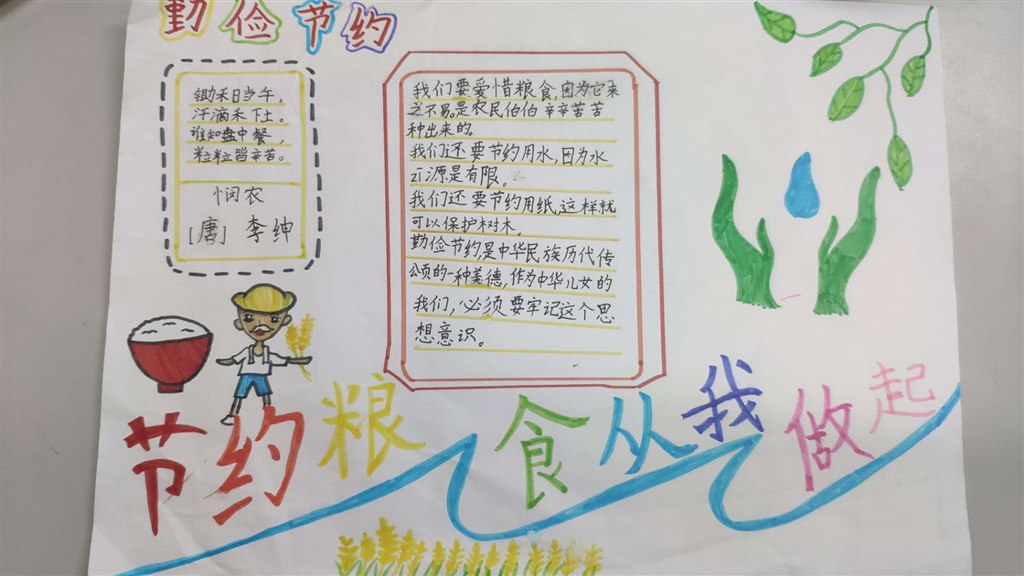 勤俭节约
锄禾日当午，
汗滴禾下土。
谁知盘中餐，
粒粒皆辛苦。
悯农
[唐] 李绅
我们要爱惜粮食,因为它来
之不易。是农民伯伯辛辛苦苦
种出来的。
我们还要节约用水,因为水
zi源是有限。
我们还要节约用纸,这样就
可以保护树木。
勤俭节约是中华民族历代传
颂的一种美德,作为中华儿女的
我们,必须要牢记这个思
想意识。
节约粮食从我做起